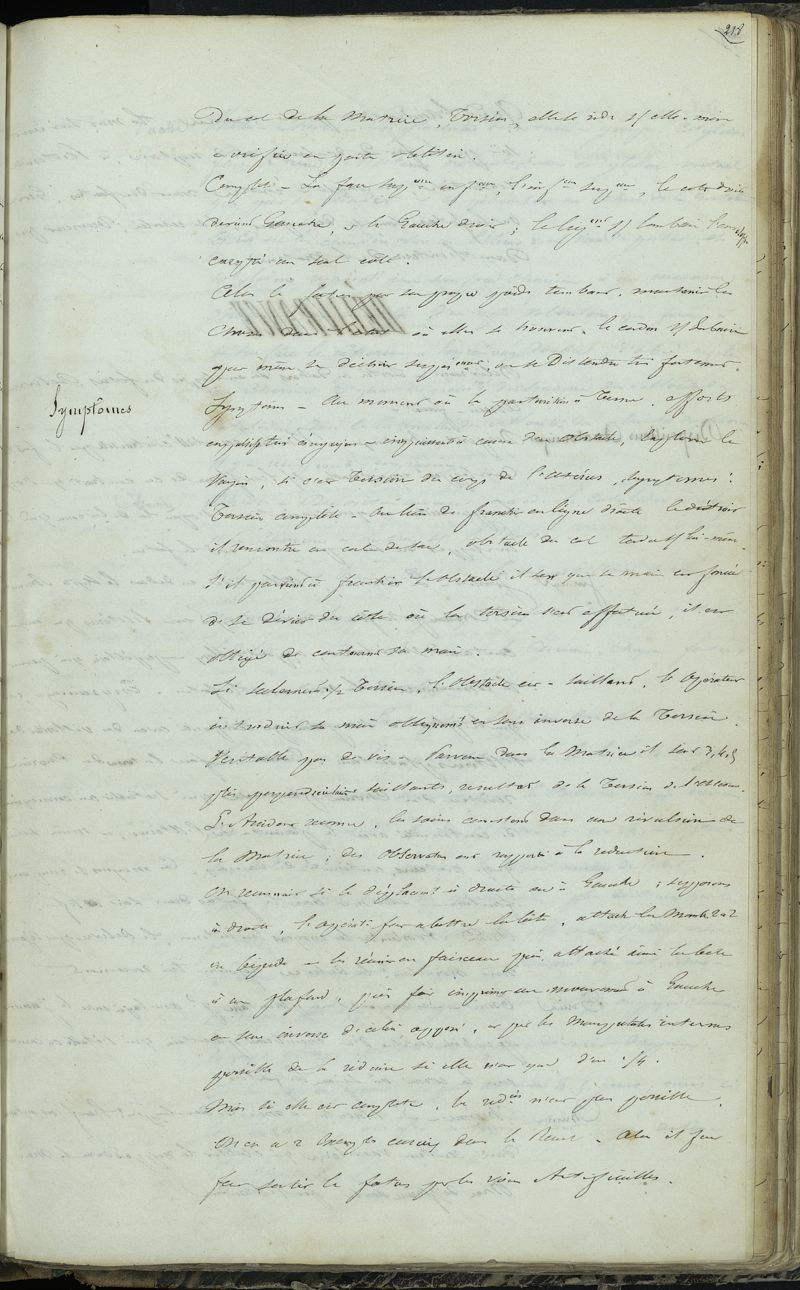 218
Du col de la Matrice, Torsion, elle se vide s/ elle-même
orifice en
Complète - La face supre infre, l'infre supre, le coté droit
devient Gauche, & le Gauche droit ; le ligent s/ lombaire
un seul coté.
Alors le fœtus par son propre poids tombant, maintenir les
choses dans l'état où elles se trouvent, le cordon s/
peut même se déchirer, ou se Distendre très fortement.
Symptomes
Symptomes - Au moment où la parturition à Terme, efforts
à cause d'un obstacle, explorer le
Vagin, si c'est Torsion du corps de l'utérus, Symptomes :
Torsion complète - Au lieu de franchir en ligne droite le détroit
il rencontre un cul de sac, obstacle du col tordu s/ lui-même.
S'il parvient à franchir l'obstacle il sent que sa main est forcée
de se dévier du côté où la torsion s'est effectuée, il est
obligé de contourner sa main.
Si seulement ½ Torsion, l'obstacle est - saillant, l'opérateur
introduit sa main obliquemt en sens inverse de la Torsion.
Véritable pas de vis - Parvenu dans la Matrice il sent 3, 4, 5
plis perpendiculaires saillants, résultat de la Torsion de
L'Accident reconnu, les soins consistent dans une révulsion de
la Matrice ; des observateurs ont rapporté à la réduction.
On reconnait si le déplacemt à droite ou à Gauche ; supposons
à droite, l'opérat: fait abattre la bête, attache les Membres 2 à 2
en bipède - les réunir en faisceau puis attaché ainsi la bête
à un plafond, puis fait imprimer un mouvement à Gauche
en sens inverse de celui opposé, et par les Manipulations internes
possible de la réduire si elle n'est que d'un ¼.
Mais si elle est complète, la redon n'est pas possible.
On en a 2 Exemples curieux dans le Recueil - Alors il faut
faire sortir le fœtus par les voies Artificielles.